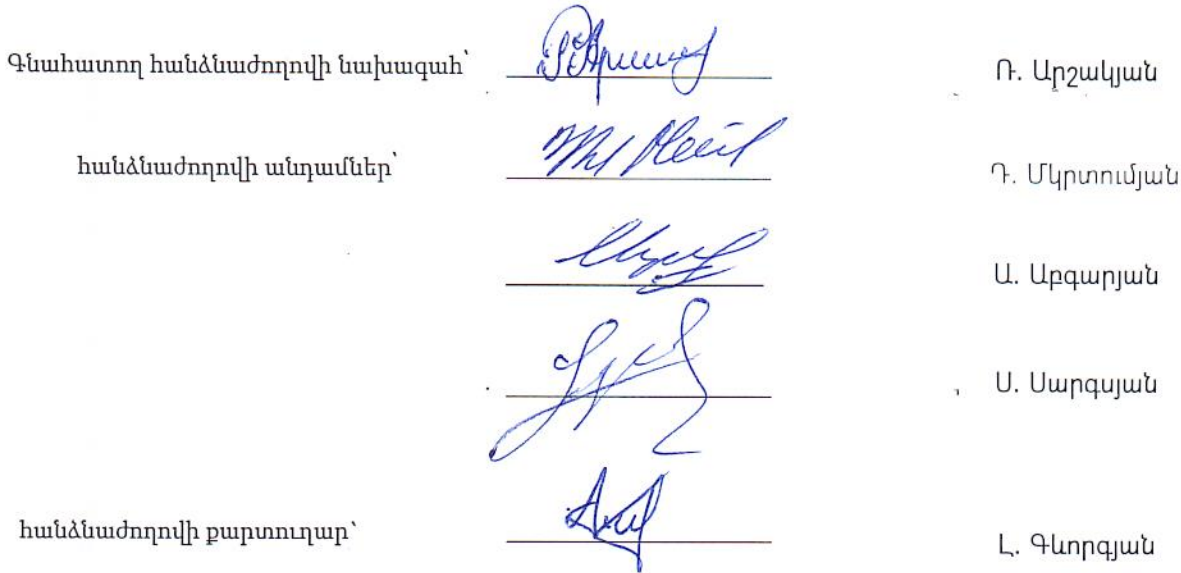 Գնահատող հանձնաժողովի նախագահ՝ Ռ. Արշակյան
հանձնաժողովի անդամներ՝ Դ. Մկրտումյան
Ա. Աբգարյան
Ս. Սարգսյան
հանձնաժողովի քարտուղար՝ Լ. Գևորգյան